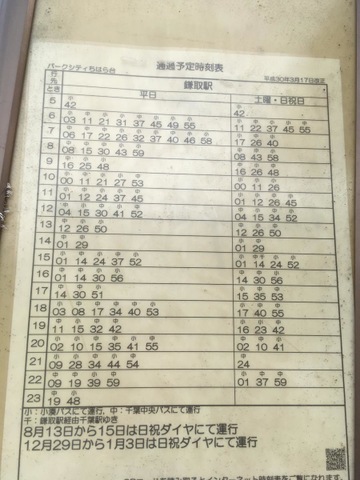 パークシティちはら台 通過予定時刻表
平成30年3月17日改正
行先 鎌取駅
とき 平日 土曜・日祝日
5 42
6 03 11 21 31 37 45 49 55 42
7 06 17 22 26 32 37 40 46 58 11 22 37 45 55
8 08 15 30 43 59 17 26 40
9 16 25 48 08 43 58
10 00 11 21 27 53 16 26 48
11 01 12 24 37 45 00 11 26
12 04 15 30 41 52 01 12 26 45
13 12 26 50 04 15 34 52
14 01 29 12 26 50
15 01 14 24 37 52 01 29
16 01 14 30 56 01 14 24 52
17 14 30 51 14 30 56
18 03 08 17 34 40 53 15 35 53
19 11 15 32 42 17 40 55
20 02 10 15 35 41 55 16 23 42
21 09 28 34 44 54 02 10 41
22 09 19 39 59 24
23 19 48 01 37 59
小:小湊バスにて運行, 中:千葉中央バスにて運行
千:鎌取駅経由千葉駅ゆき
8月13日から15日は日祝ダイヤにて運行
12月29日から1月3日は日祝ダイヤにて運行